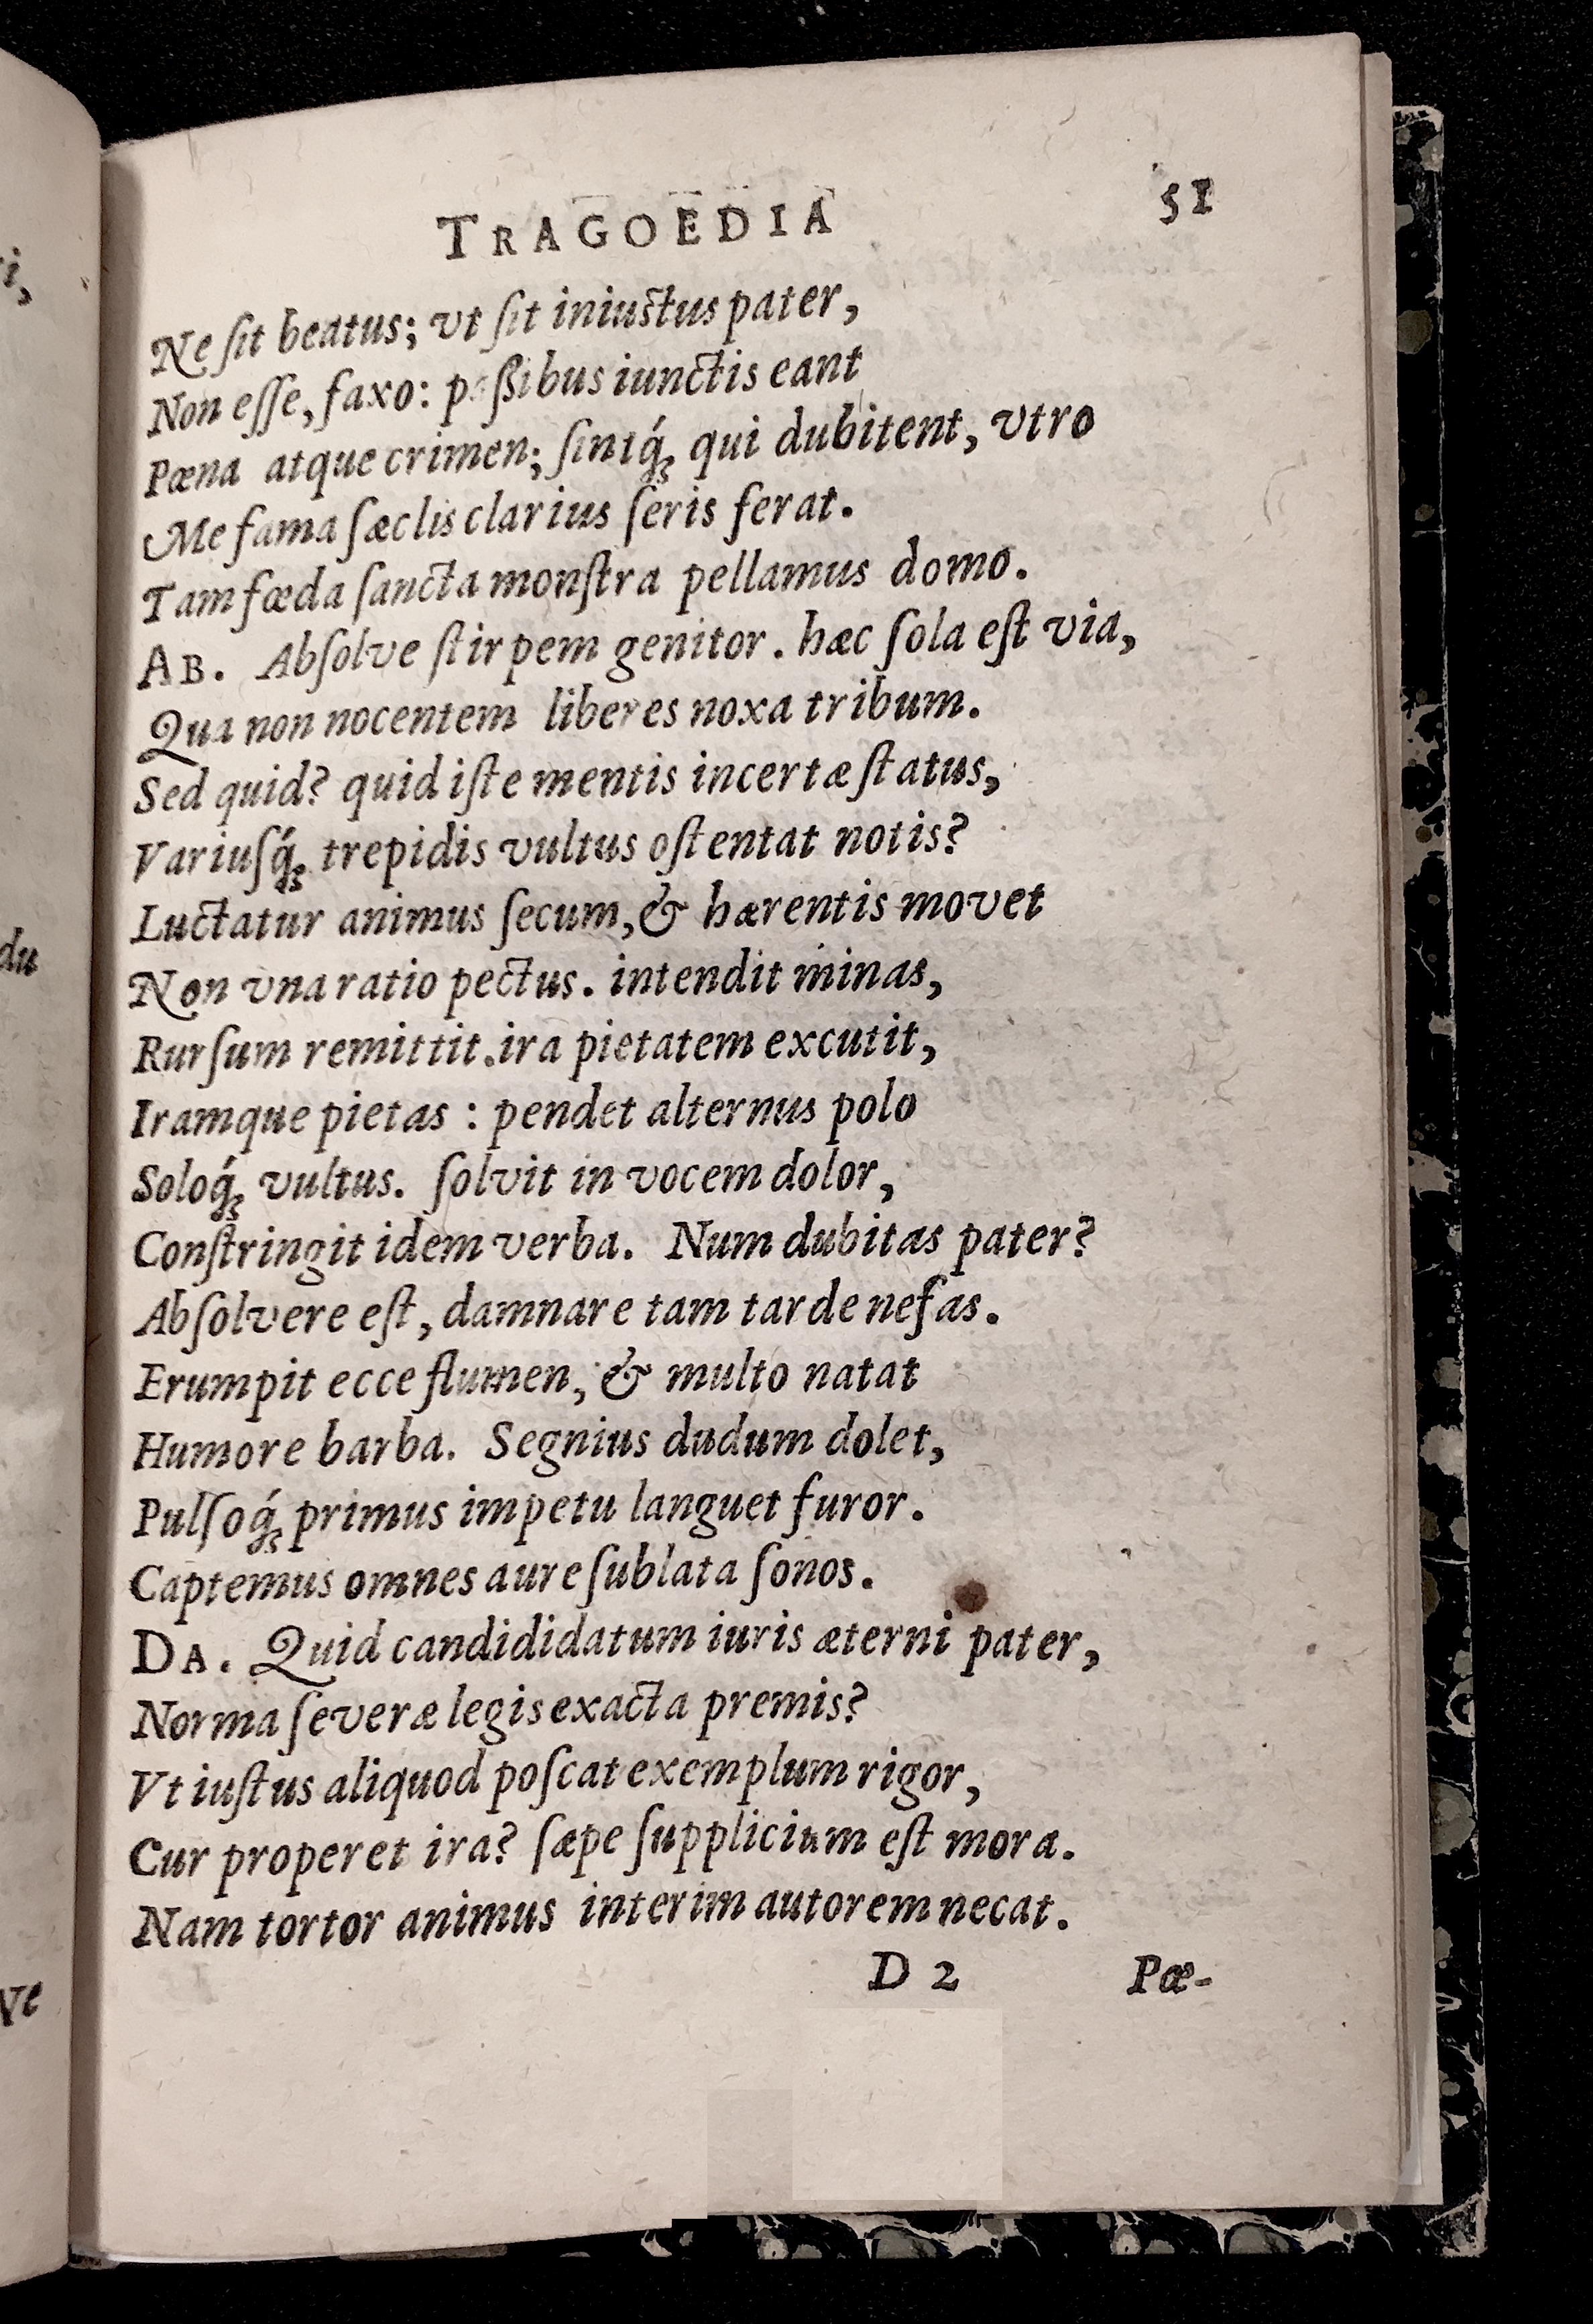 TRAGOEDIA 51
Ne ſit beatus; vt ſit iniuſtus pater,
Non eſſe, faxo: paßibus iunctis eant
Pœna atque crimen; ſintq́ꝫ qui dubitent, vtro
Me fama ſæclis clarius ſeris ferat.
Tam fœda ſancta monſtra pellamus domo.
AB. Abſolve ſtirpem genitor. hæc ſola eſt via,
Qua non nocentem liberes noxa tribum.
Sed quid? quid iſte mentis incertæ ſtatus,
Variuſq́ꝫ trepidis vultus oſtentat notis?
Luctatur animus ſecum, & hærentis movet
Non vna ratio pectus. intendit minas,
Rurſum remittit. ira pietatem excutit,
Iramque pietas : pendet alternus polo
Soloq́ꝫ vultus. ſolvit in vocem dolor,
Conſtringit idem verba. Num dubitas pater?
Abſolvere eſt, damnare tam tarde nefas.
Erumpit ecce flumen, & multo natat
Humore barba. Segnius dudum dolet,
Pulſoq́ꝫ primus impetu languet furor.
Captemus omnes aure ſublata ſonos.
DA. Quid candididatum iuris æterni pater,
Norma ſeveræ legis exacta premis?
Vt iuſtus aliquod poſcat exemplum rigor,
Cur properet ira? ſæpe ſupplicium eſt mora.
Nam tortor animus interim autorem necat.
D 2 Pœ-